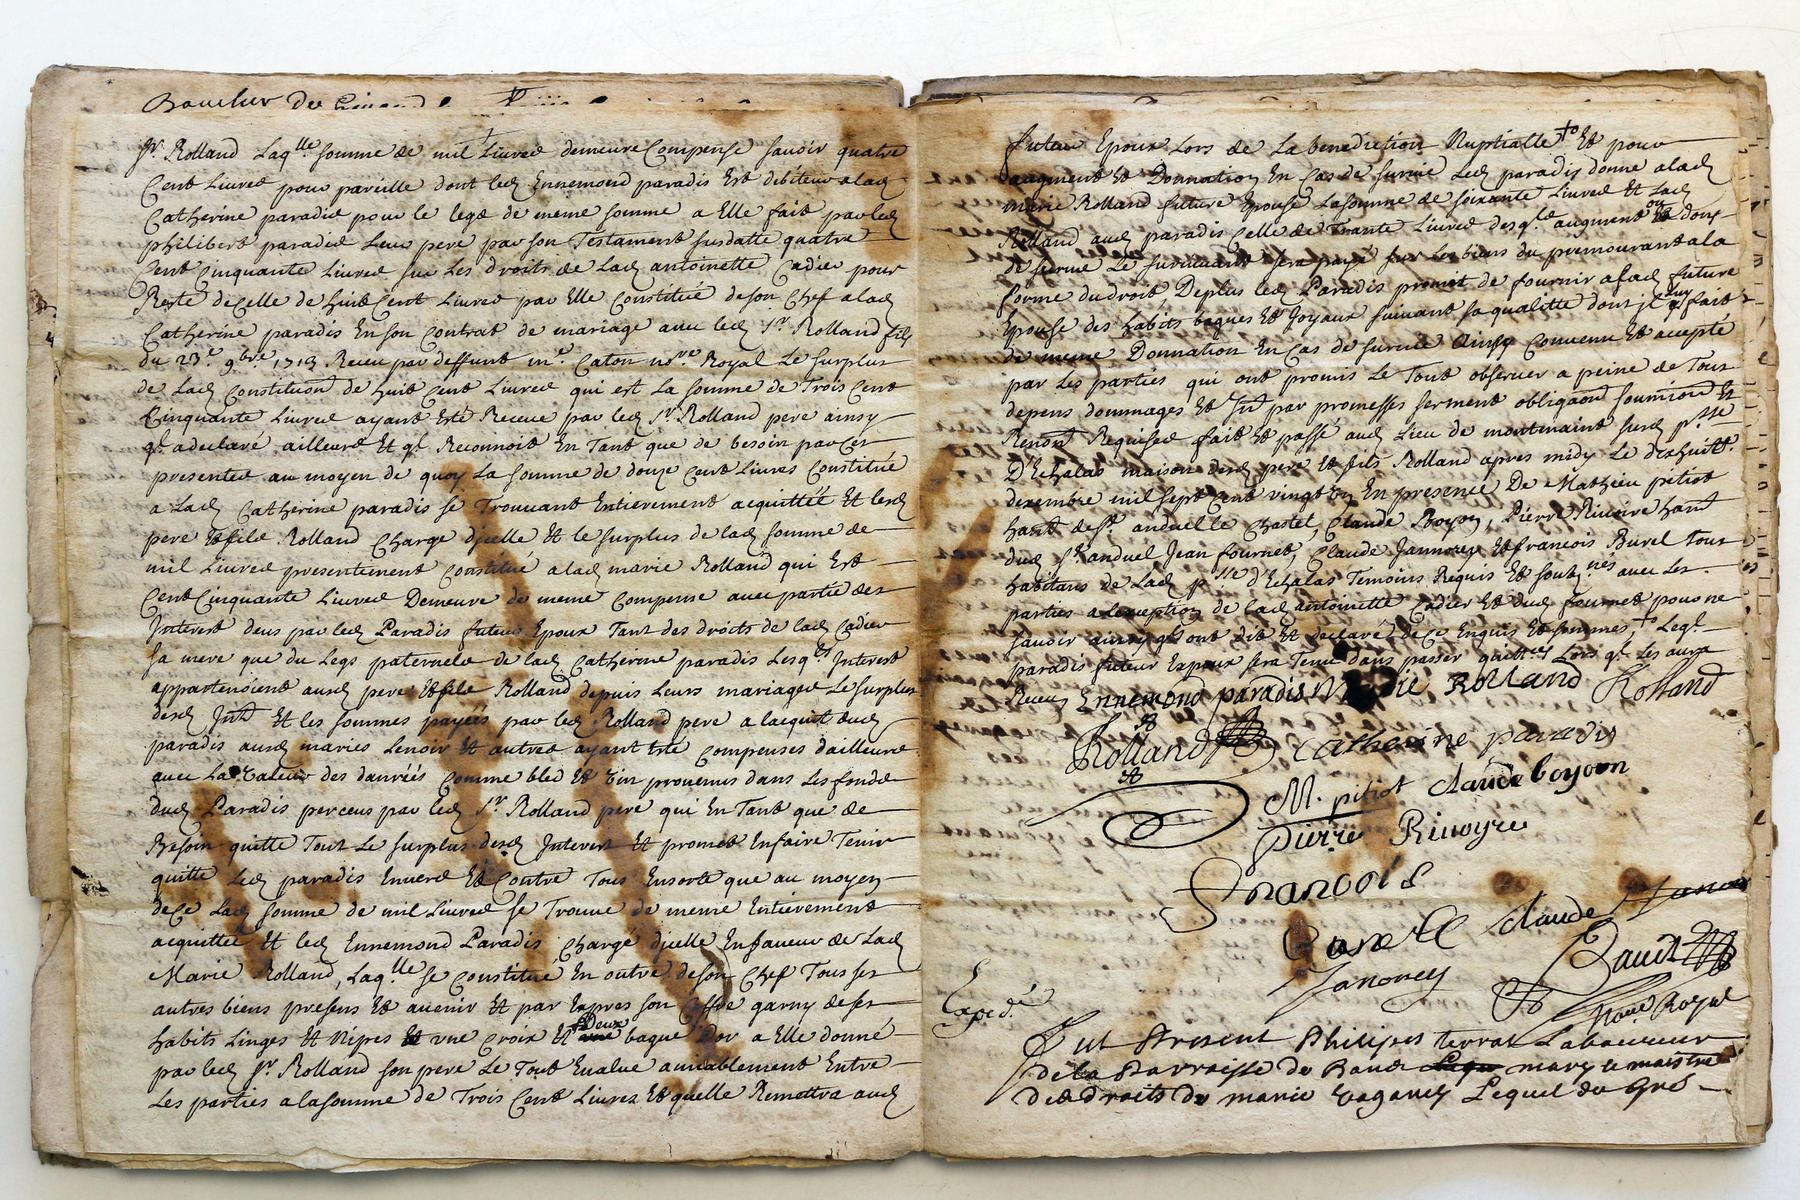 Sr. Rolland Laqlle somme de mil Livres demeure Compensé savoir quatre
Cent Livres pour pareille dont led Ennemond paradis Est debiteur alad
Catherine paradis pour le legs de meme somme a Elle fait par led
philibert paradis Leur pere par son Testament susdatte quatre
Cent Cinquante Livres sur Les droits de Lad antoinette Cadier pour
Reste decelle de huit Cent Livres par Elle Constitué deson Chef alad
Catherine paradis En son Contrat de mariage avec led Sr. Rolland fils
du 23e. 9bre. 1713 Receu par deffunt me. Caton nore. Royal Le surplus
de Lad Constitution de huit Cent Livres qui est La somme de Trois Cent
Cinquante Livres ayant Esté Receue par led Sr. Rolland pere ainsy
ql. adeclaré ailleurs Et ql. Reconnoit En Tant que de besoin par Ces
presentes au moyen de quoy La somme de douze Cent Livres Constitué
a Lad Catherine paradis se Trouvant Entierement acquittée Et lesd
pere Et fils Rolland Chargé djcelle Et le surplus de lad somme de
mil Livres presentement Constitué alad marie Rolland qui Est
Cent Cinquante Livres Demeure de meme Compensé avec partie des
Interest deus par led Paradis futeur Epoux Tant des droits de lad Cadier
sa mere que du Legs paternels de lad Catherine paradis Lesqls Interest
appartenoient ausd pere Et fils Rolland depuis Leurs mariages Le surplus
desd Intt Et les sommes payées par led Rolland pere a lacquit dud
paradis ausd maries Lenoir Et autres ayant Esté Compensés dailleurs
avec La valeur des danrées Comme bled Et vin provenus dans les fonds
dud Paradis perceus par led Sr. Rolland pere qui En Tant que de
Besoin quitte Tout Le surplus desd Interest Et promet En faire Tenir
quitte Led paradis Envers Et Contre Tous Ensorte que au moyen
dece Lad somme de mil Livres se Trouve de meme Entierement
acquittée Et led Ennemond Paradis Chargé djcelle En faveur de Lad
Marie Rolland, Laqlle se Constitue En outre deson Chef Tous ses
autres biens presens Et avenir Et par Expres son Coffre garny deses
habits Linges Et Nipes Et vne Croix Et Deux bague d'or a Elle donné
par led Sr. Rolland son pere Le Tout Evalué amiablement Entre
Les parties alasomme de Trois Cent Livres Et quelle Remettra aud
futeur Epoux Lors de La benediction Nuptialle Et pour
augment Et Donnation En Cas de survie Led paradis donne alad
marie Rolland future Epouse Lasomme de soixante Livres Et Lad
Rolland aud paradis Celle de Trante Livres desql. augment ou don
de survie Le survivant sera payé sur Les biens du premourant ala
forme du droit, Deplus led Paradis promet de fournir a sad future
Epouse des habits bagues Et Joyaux suivant sa qualitté dont jl luy fait
de meme Donnation En Cas de survie Ainsy Convenu Et accepté
par Les parties qui ont promis Le Tout observer a peine de Tous
depens dommages Et Intt par promesses serment obligaon soumission Et
Renont Requises fait Et passé aud Lieu de montmaint susd psse
D'Echalas maison desd pere Et fils Rolland apres midy Le dixhuitt.
dexembre mil sept Cent vingt En presence De Mathieu pitiot
hant de St. anduel le Chastel, Claude Boyon, Pierre Rivoire hant
dud St. anduel Jean fournet, Claude Janoray Et francois Burel Tous
habitans de Lad psse d'Echalas Temoins Requis Et soubznes avec Les
parties a lexeption de lad antoinette Cadier Et dud fournet pour ne
savoir ainsy qls ont dit Et declaré de Ce Enquis Et sommes, Leql.
paradis futeur Expoux sera Tenu dans passer quittces Lors ql. Les aura
Receus Ennemond paradis Marie Rolland Rolland
Rolland Catherine paradis
M. pitiot claude boyoon
pierre Rivoyre
francois
Burell claude Janoray
Janorey
Expedé
Royal
Fut Present Philipes terrat Laboureur
dela Parroisse de mary e maistre
des droits de marie Lequel de gré